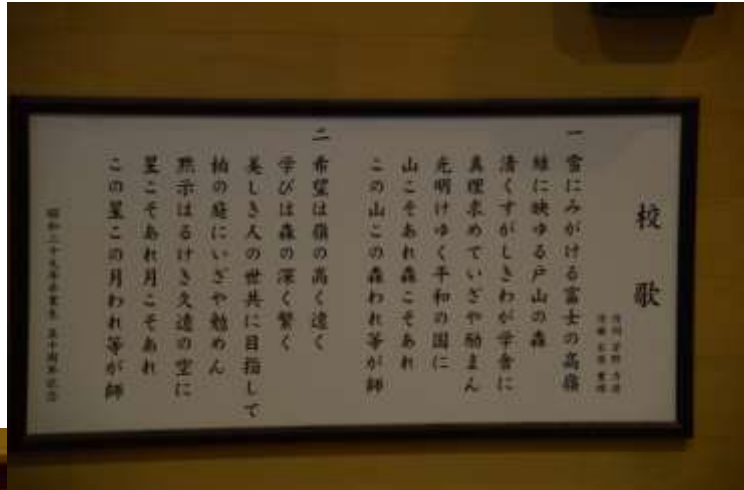 校歌
一 雪にみがける富士の高嶺
緑に映ゆる戸山の森
清くすがしきわが学舎に
真理求めていざや励まん
光明けゆく平和の国に
山こそあれ森こそあれ
この山この森われ等が師
二 希望は嶺の高く遠く
学びは森の深く繁く
美しき人の世共に目指して
柏の庭にいざや勉めん
黙示はるけき久遠の空に
星こそあれ月こそあれ
この星この月われ等が師
昭和三十九年卒業生 五十周年記念